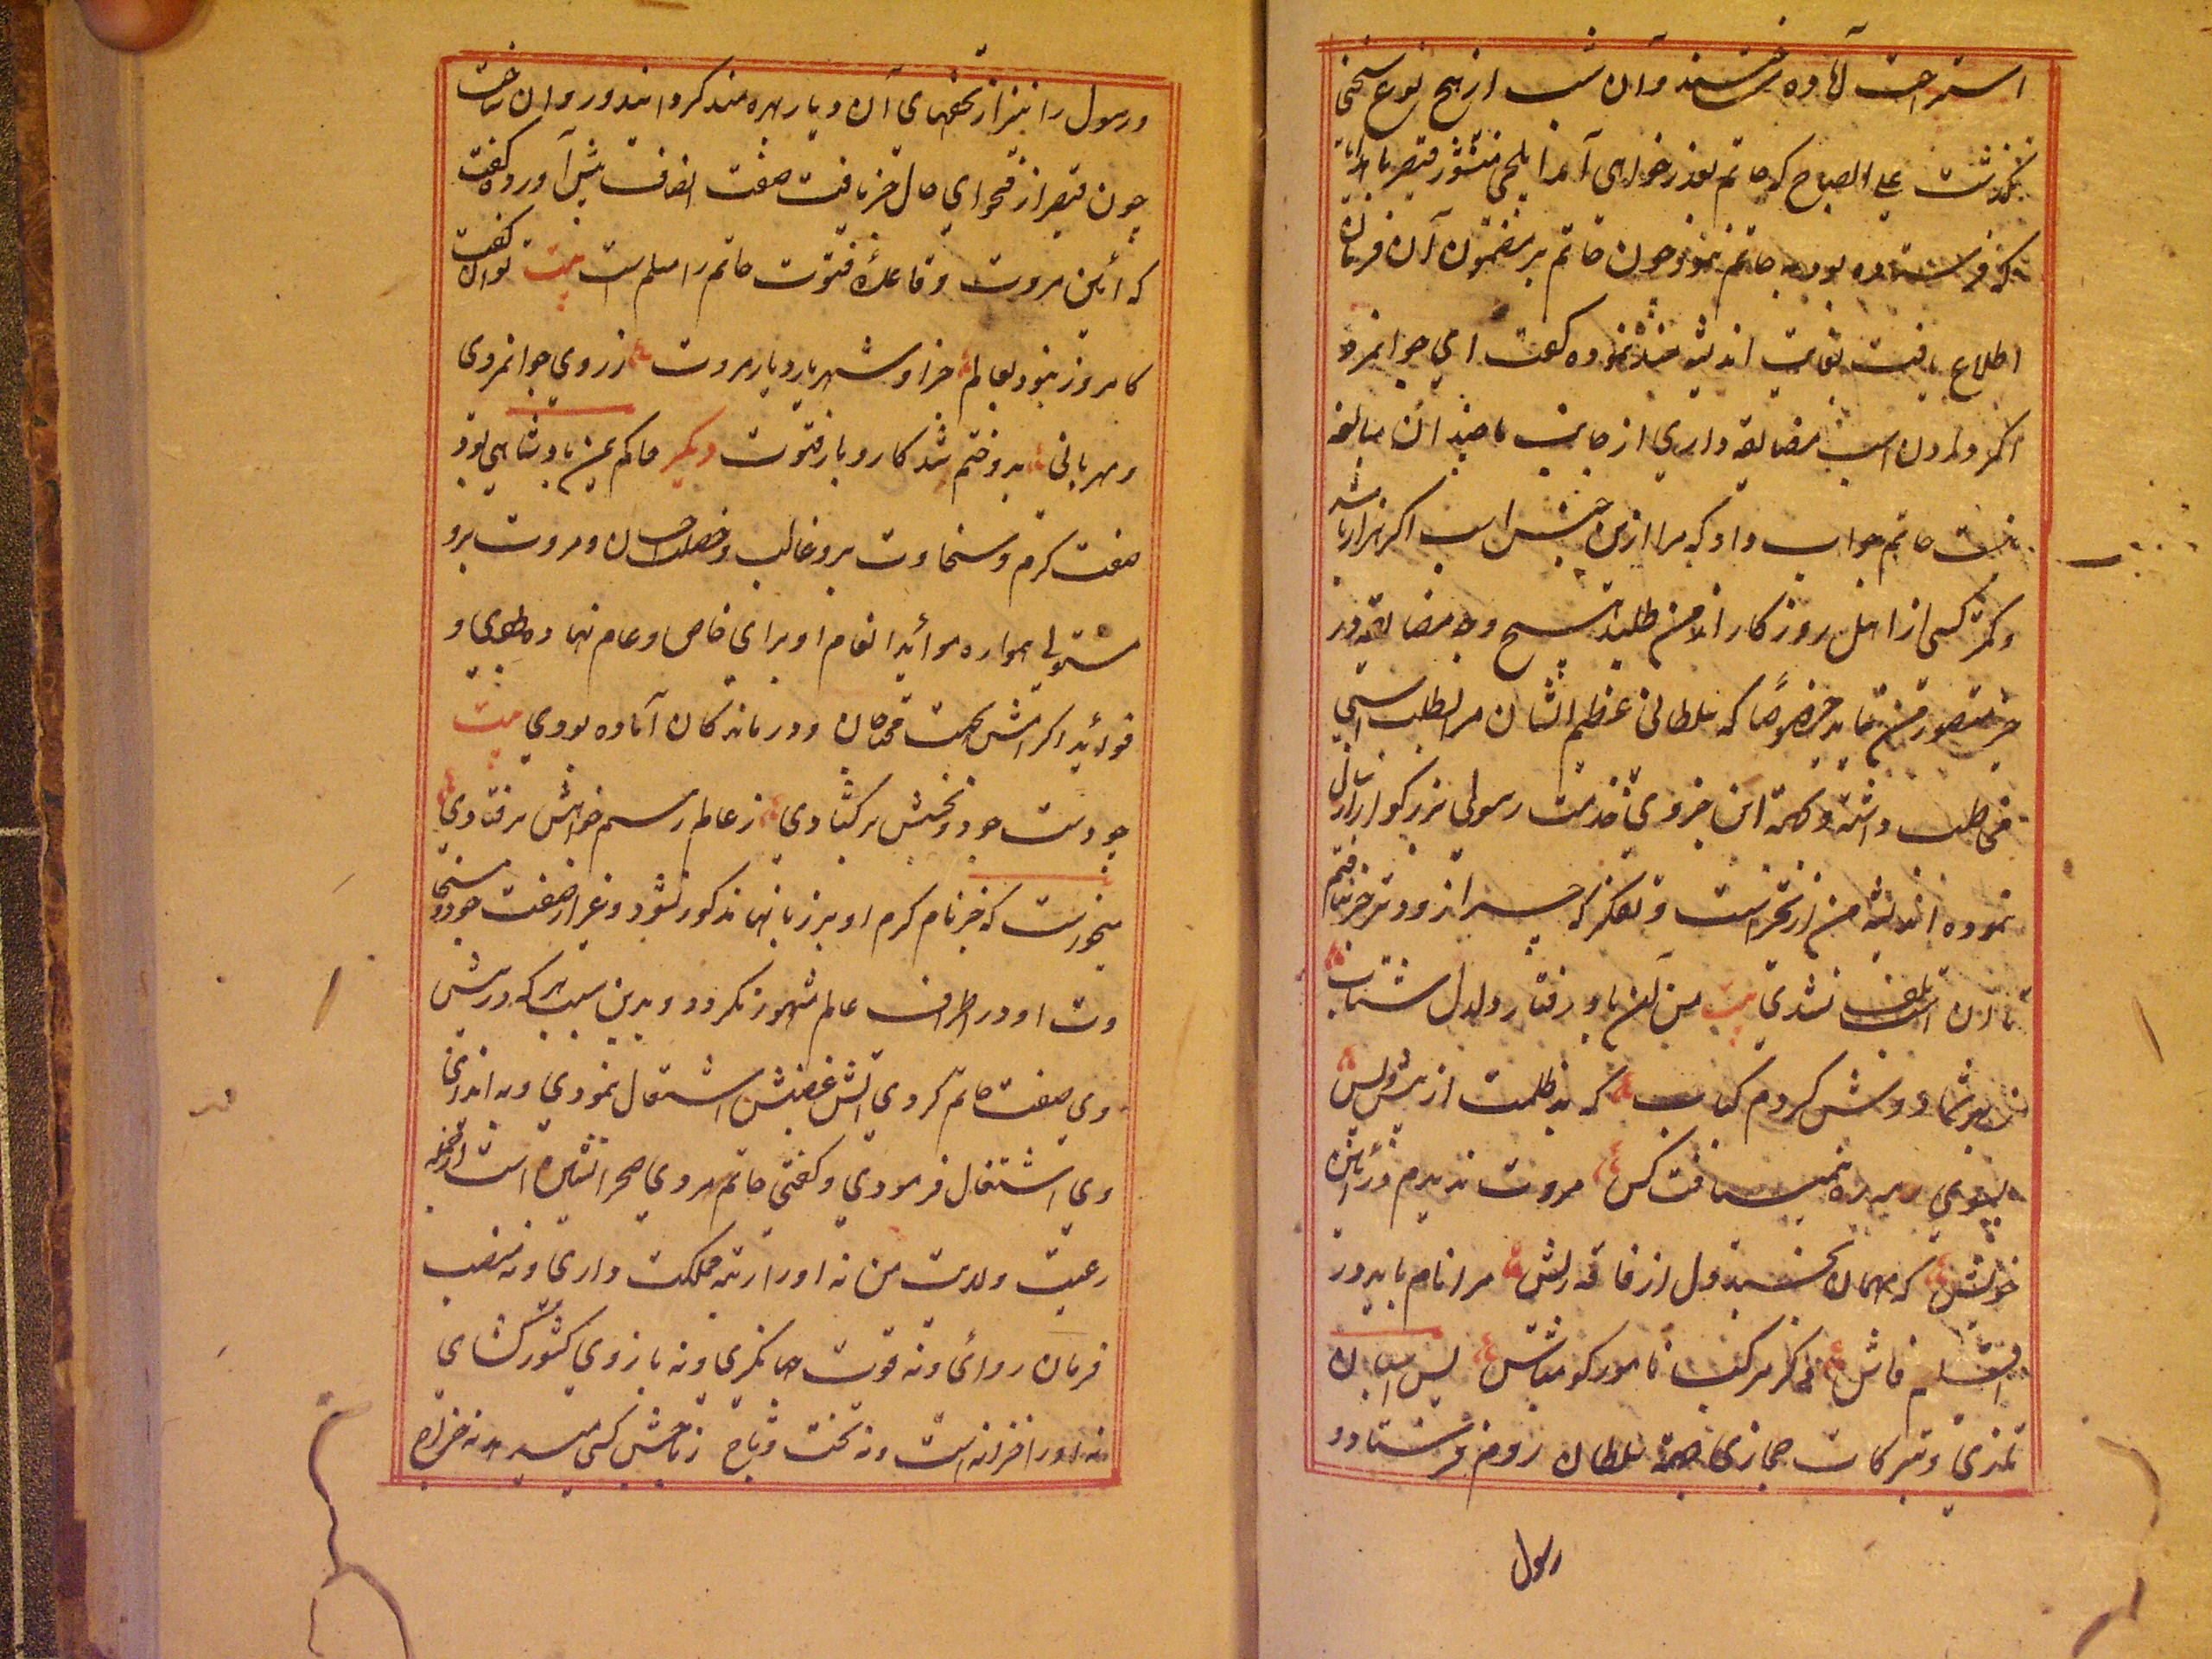 استراحت آماده ساختند و آن شب از هیچ نوع سخنی
نگذشت علی الصباح که حاتم بعذر خواهی آمد ایلچی منشور قیصر با هدایا
که فرستاده بود به حاتم نمود چون حاتم بر مضمون آن فرمان
اطلاع یافت بغایت اندیشه مند نموده گفت ای جوانمرد
اگر در دادن اسب مضایقه داری از جانب ما چندان مبالغه
نیست حاتم جواب داد که مرا ازین جنس اسب اگر هزار باشد
و کمتر کسی از اهل روزگار از من طلبد هیچ وجه مضایقه در
حیز تصور من نماید خصوصا که سلطانی عظیم الشان مرا بطلب اسپی
مخاطب داشته و بجهة این جزوی خدمت رسولی بزرگوار ارسال
نموده اندیشه من از تحیر است و تفکر که چرا زودتر خبر نیافتم
تا آن اسب تلف نشدی بیت من آن باد رفتار دلدل شتاب
ز بهر شما دوش کردم کباب که بد ظلمت از پیش و پس
بسوی رمه ره نمییافت کس مروت ندیدم در آئین
خویش که مهمان بخسپد دل از فاقه ریش مرا نام باید در
اقلیم فاش دگر مرکب نامور گو مباش پس اسبان
تازی و تبرکات حجازی بجهة سلطان روم فرستاد و
رسول
و رسول را نیز از تحفهای آن دیار بهره مند گردانید و روان ساخت
چون قیصر از فحوای حال خبر یافت صفت انصاف پیش آورده گفت
که آئین مروت و قاعدهٔ فتوت حاتم را مسلم است بیت توان گفت
کامروز نبود بعالم جز او شهریار دیار مروت ز روی جوانمردی
و مهربانی بدو ختم شد کاروبار فتوت دیگر حاکم یمن پادشاهی بود
صفت کرم و سخاوت برو غالب و خصلت احسان و مروت برو
مستولی همواره موائید انعام او برای خاص و عام نهاده بودی و
فوائید اکرامش بجهت محتاجان و درماندگان آماده بودی بیت
چو دست جود و بخشش برگشادی ز عالم رسم خواهش برفتادی
میخواست که جز نام کرم او بر زبانها مذکور نشود و غیر از صفت جود و سخا
وت او در اطراف عالم مشهور نگردد و بدین سبب هر که در پیش
وی صفت حاتم کردی آتش غضبش اشتعال نمودی و به ایذای
وی اشتغال فرمودی و گفتی حاتم مردی صحرا نشین است از جمله
رعیت ولایت من نه او را رتبه مملکت داری و نه منصب
فرمان روائی و نه قوت جهانگیری و نه بازوی کشور گشای
نه او را خزانه است و نه تخت و تاج ز تاجش کسی میبرد نه خراج